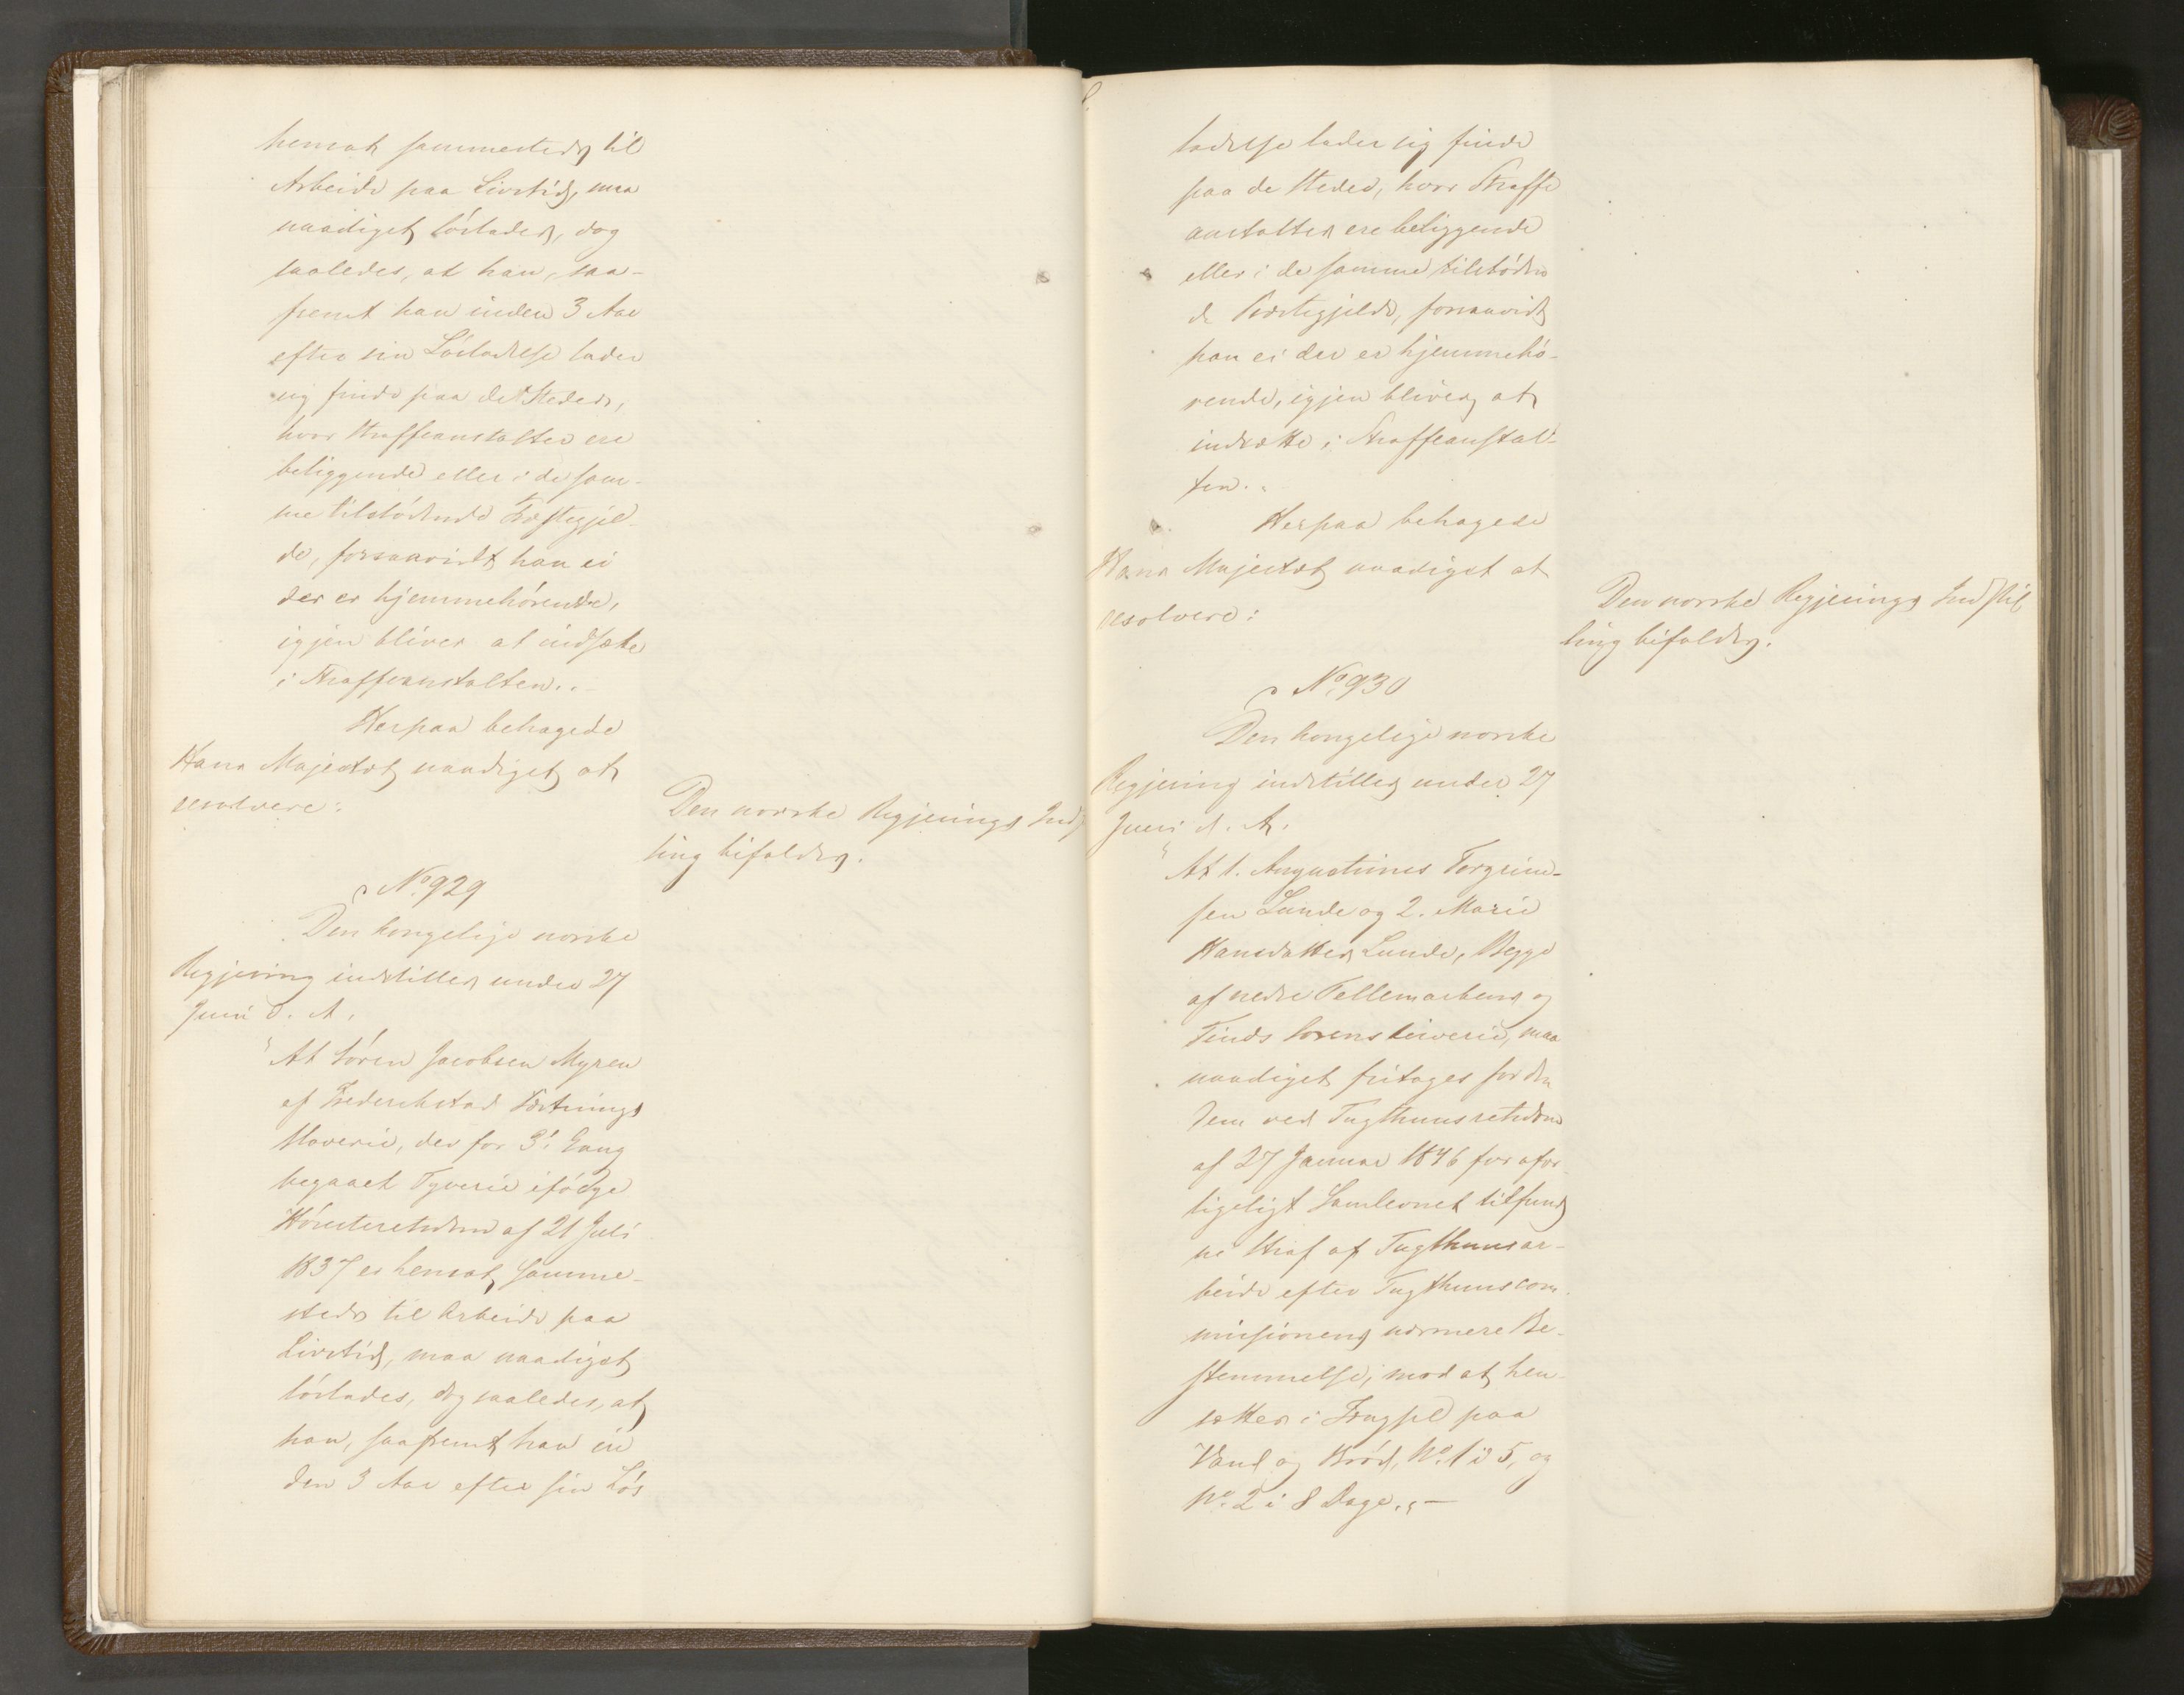 hensat sammesteds til
Arbeide paa Livstid, maa
naadigst løslades, dog
saaledes, at han, saa-
fremt han inden 3 Aar
efter sin Løsladelse lader
sig finde paa de Steder,
hvor Straffeanstalter ere
beliggende eller i de sam-
me tilstødende Præstegjel-
de, forsaavidt han ei
der er hjemmehørende,
igjen bliver at indsætte
i Straffeanstalten."
Herpaa behagede
Hans Majestæt naadigst at
resolvere:
Den norske Regjerings Ind
ling bifaldes.
No 929
Den kongelige norske
Regjering indstiller under 27
Juni d. A.
"At Søren Jacobsen Myren
af Frederikstad Fæstnings
Slaverie, der for 3' Gang
begaaet Tyverie ifølge
Høiesteretsdom af 21 Juli
1837 er hensat samme-
steds til Arbeide paa
Livstid, maa naadigst
løslades, dog saaledes, at
han, saafremt han in
den 3 Aar efter sin Løs
ladelse lader sig finde
paa de Steder, hvor Straffe
anstalter ere beliggende
eller i de samme tilstøden
de Præstegjelde, forsaavidt
han ei der er hjemmehø-
rende, igjen bliver at
indsætte i Straffeanstal-
ten."
Herpaa behagede
Hans Majestæt naadigst at
resolvere:
Den norske Regjerings Indstil
ling bifaldes.
No 930
Den kongelige norske
Regjering indstiller under 27
Juni d. A.
"At 1. Augustinus Torgrim-
sen Lunde og 2. Marie
Hansdatter Lunde, Begge
af nedre Tellemarkens
Sorenskriverie, maa
naadigst fritages for den
dem ved Tugthuusretsdom
af 27 Januar 1846 for ufor-
ligeligt Samlevnet tilfund
ne Straf af Tugthuusar-
beide efter Tugthuuscom-
missionens nærmere Be-
stemmelse, mod at hen-
sættes i Fængsel paa
Vand og Brød, No 1 i 5, og
No 2 i 8 Dage." —